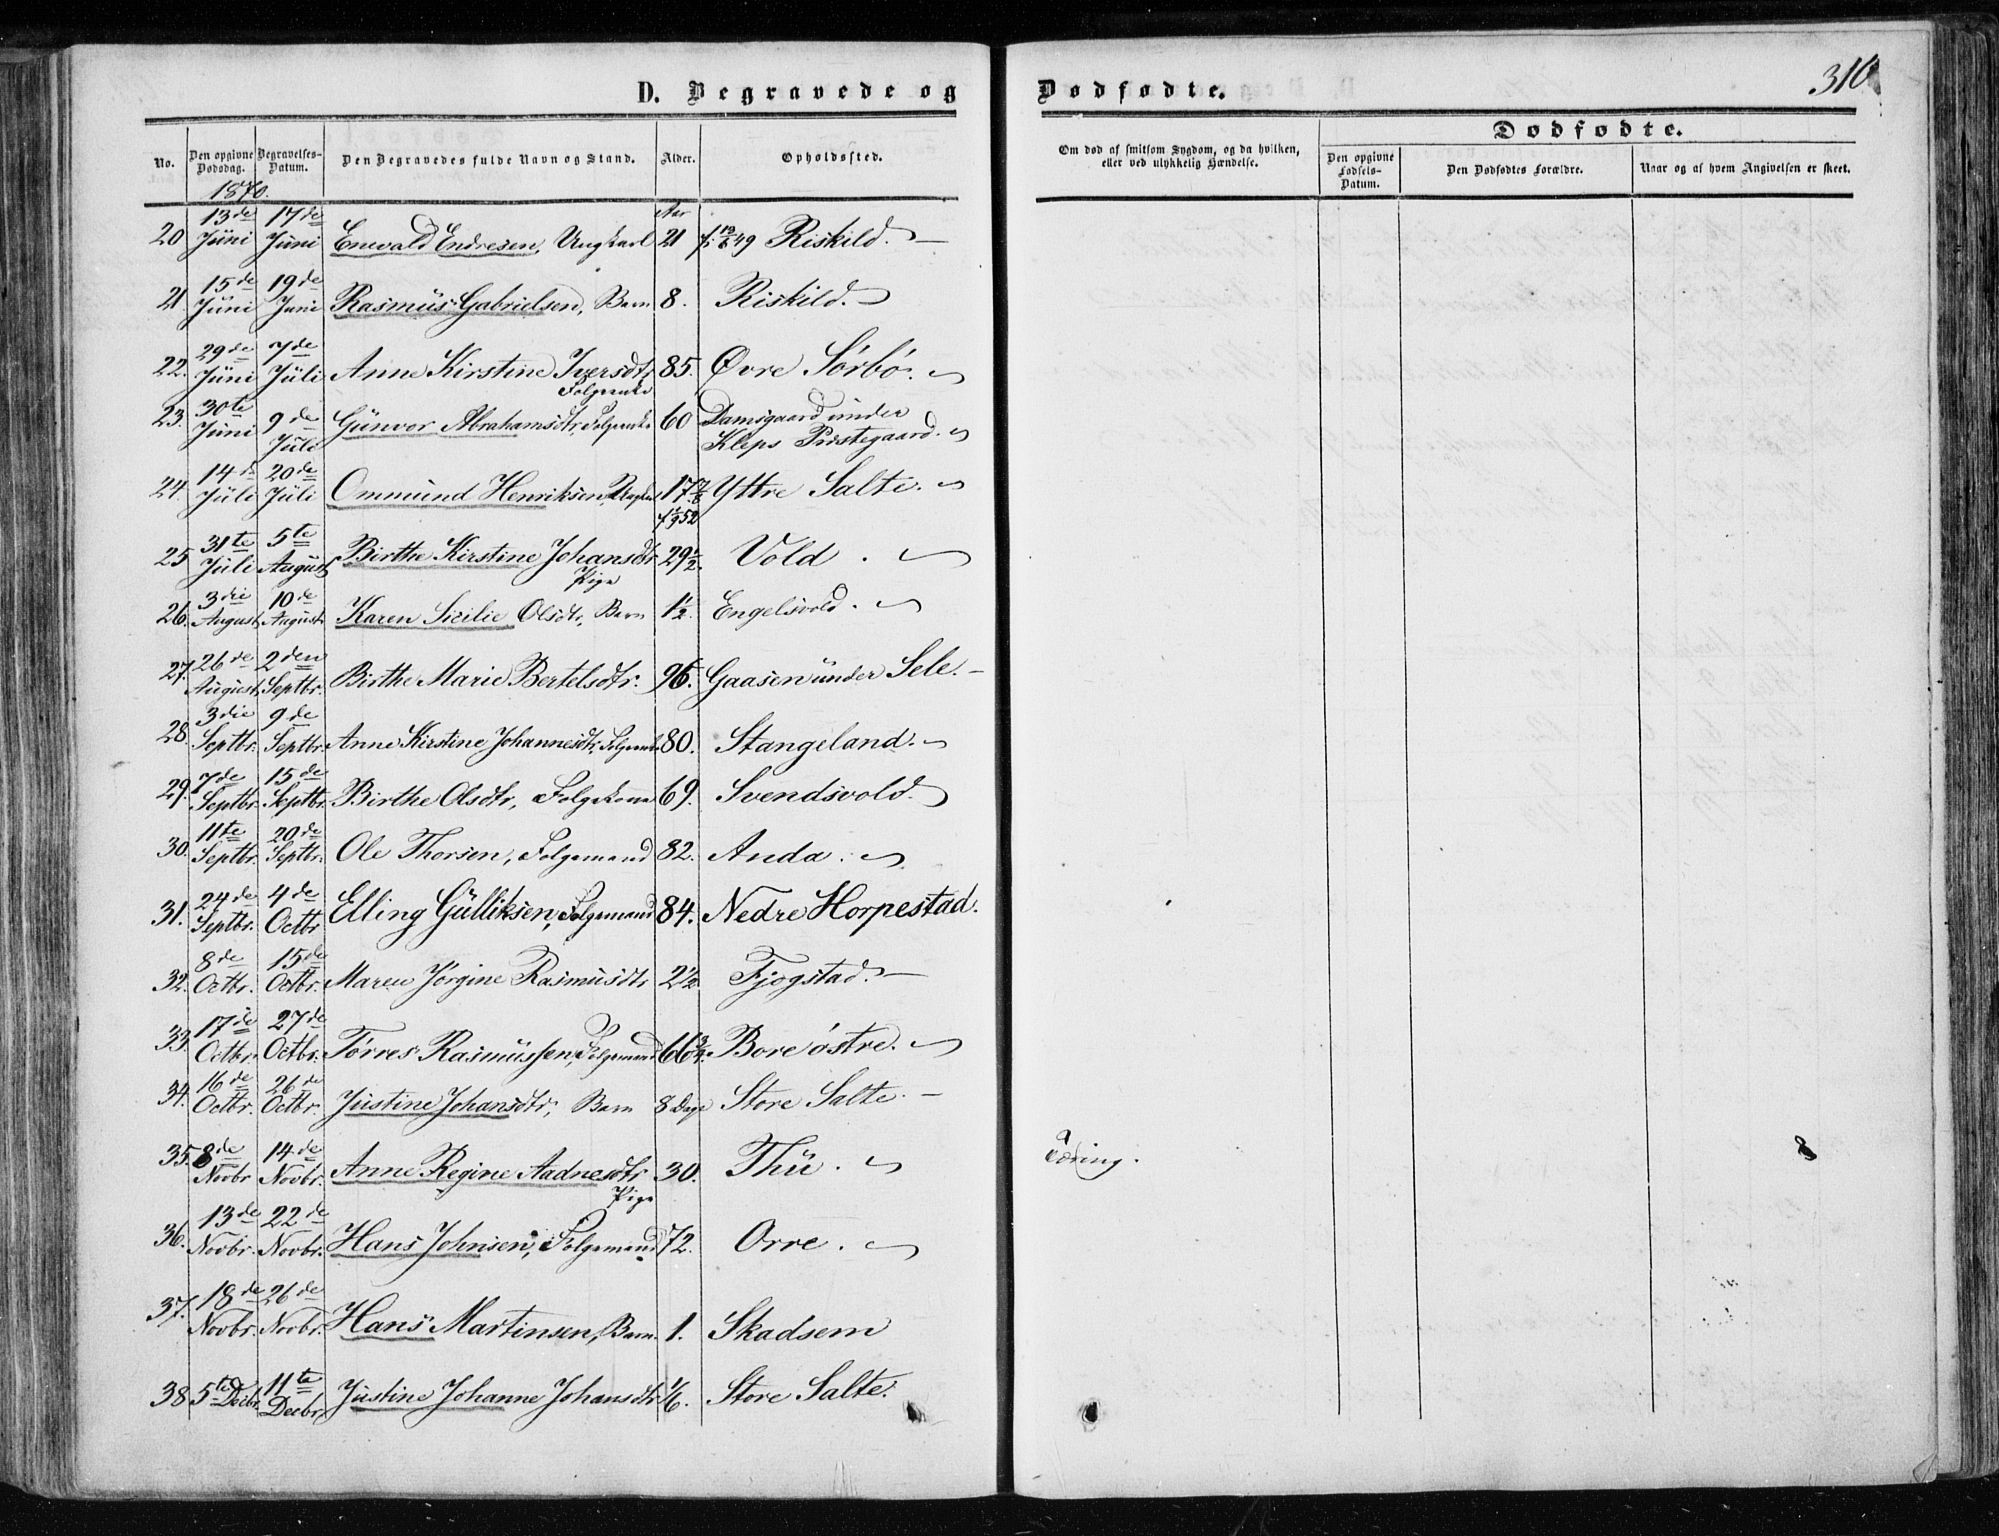 D. Begravede og Dødfødte.
310
No. Den opgivne Dødsdag. Begravelses-Datum. Den Begravedes fulde Navn og Stand. Alder. Opholdssted. Om død af smitsom Sygdom, og da hvilken, eller ved ulykkelig Hændelse. Dødfødte.
Den opgivne Fødsels-Datum. Den Dødfødtes Forældre. Naar og af hvem Angivelsen er skeet.
1870.
20 13de Juni 17de Juni Enevald Endresen, Ungkarl Aar 21 f. 19/6 49 Riskild.
21 15de Juni 19de Juni Rasmus Gabrielsen, Barn 8. Riskild.
22. 29de Juni 7de Juli Anne Kirstine Iversdtr Folgeenke 85. Øvre Sørbø.
23. 30te Juni 9de Juli Gunvor Abrahamsdtr, Folgeenke 60 Damsgaard under Kleps Præstegaard.
24 14de Juli 20de Juli Ommund Henriksen, Ungkarl 17 f 1/9 52 Yttre Salte.
25 31te Juli 5te August Birthe Kirstine Johansdtr Pige 29 1/2. Vold.
26. 3die August 10de August Karen Sicilie Olsdtr, Barn 1 1/2. Engelsvold.
27. 26de August 2den Septbr. Birthe Marie Bertelsdtr. 96. Gaasen under Sele.
28. 3die Septbr. 9de Septbr. Anne Kirstine Johannesdtr, Folgeenke 80. Stangeland.
29. 7de Septbr. 15de Septbr. Birthe Olsdtr, Folgekone 69. Svendsvold.
30. 11te Septbr. 20de Septbr. Ole Thorsen, Folgemand 82. Anda.
31. 24de Septbr. 4de Octbr Elling Gulliksen, Folgemand 84. Nedre Horpestad.
32. 8de Octbr. 15de Octbr. Maren Jørgine Rasmusdtr 2 1/2 Fjogstad.
33. 17de Octbr. 27de Octbr. Tørres Rasmussen, Folgemand 66 3/4. Bore østre.
34. 16de Octbr. 26de Octbr. Justine Johansdtr, Barn 8 Dage Store Salte.
35. 8de Novbr 14de Novbr. Anne Regine Aadnesdtr Pige 30. Thu. Tæring.
36. 13de Novbr. 22de Novbr. Hans Johnsen, Folgemand 72. Orre.
37. 18de Novbr. 26de Novbr. Hans Martinsen, Barn. 1. Skadsem
38 5te Decbr. 11te Decbr. Justine Johanne Johansdtr 1/6. Store Salte.